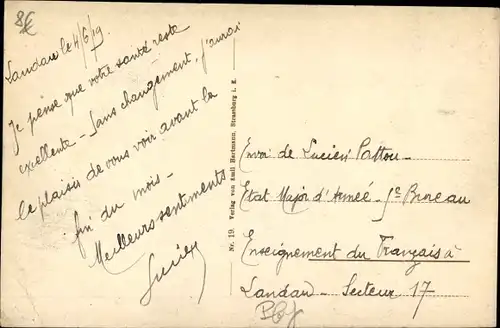 8€
Landau le 4/6/19
Je pense que votre santé reste
excellente - Sans changement, j'aurai
le plaisir de vous voir avant la
fin du mois -
Meilleurs sentiments
Lucien
Nr. 19. Verlag von Emil Hartmann, Strassburg i. E.
Envoi de Lucien Pattou -
Etat Major d'Armée - Bureau
Enseignement du Français à
Landau - Secteur 17